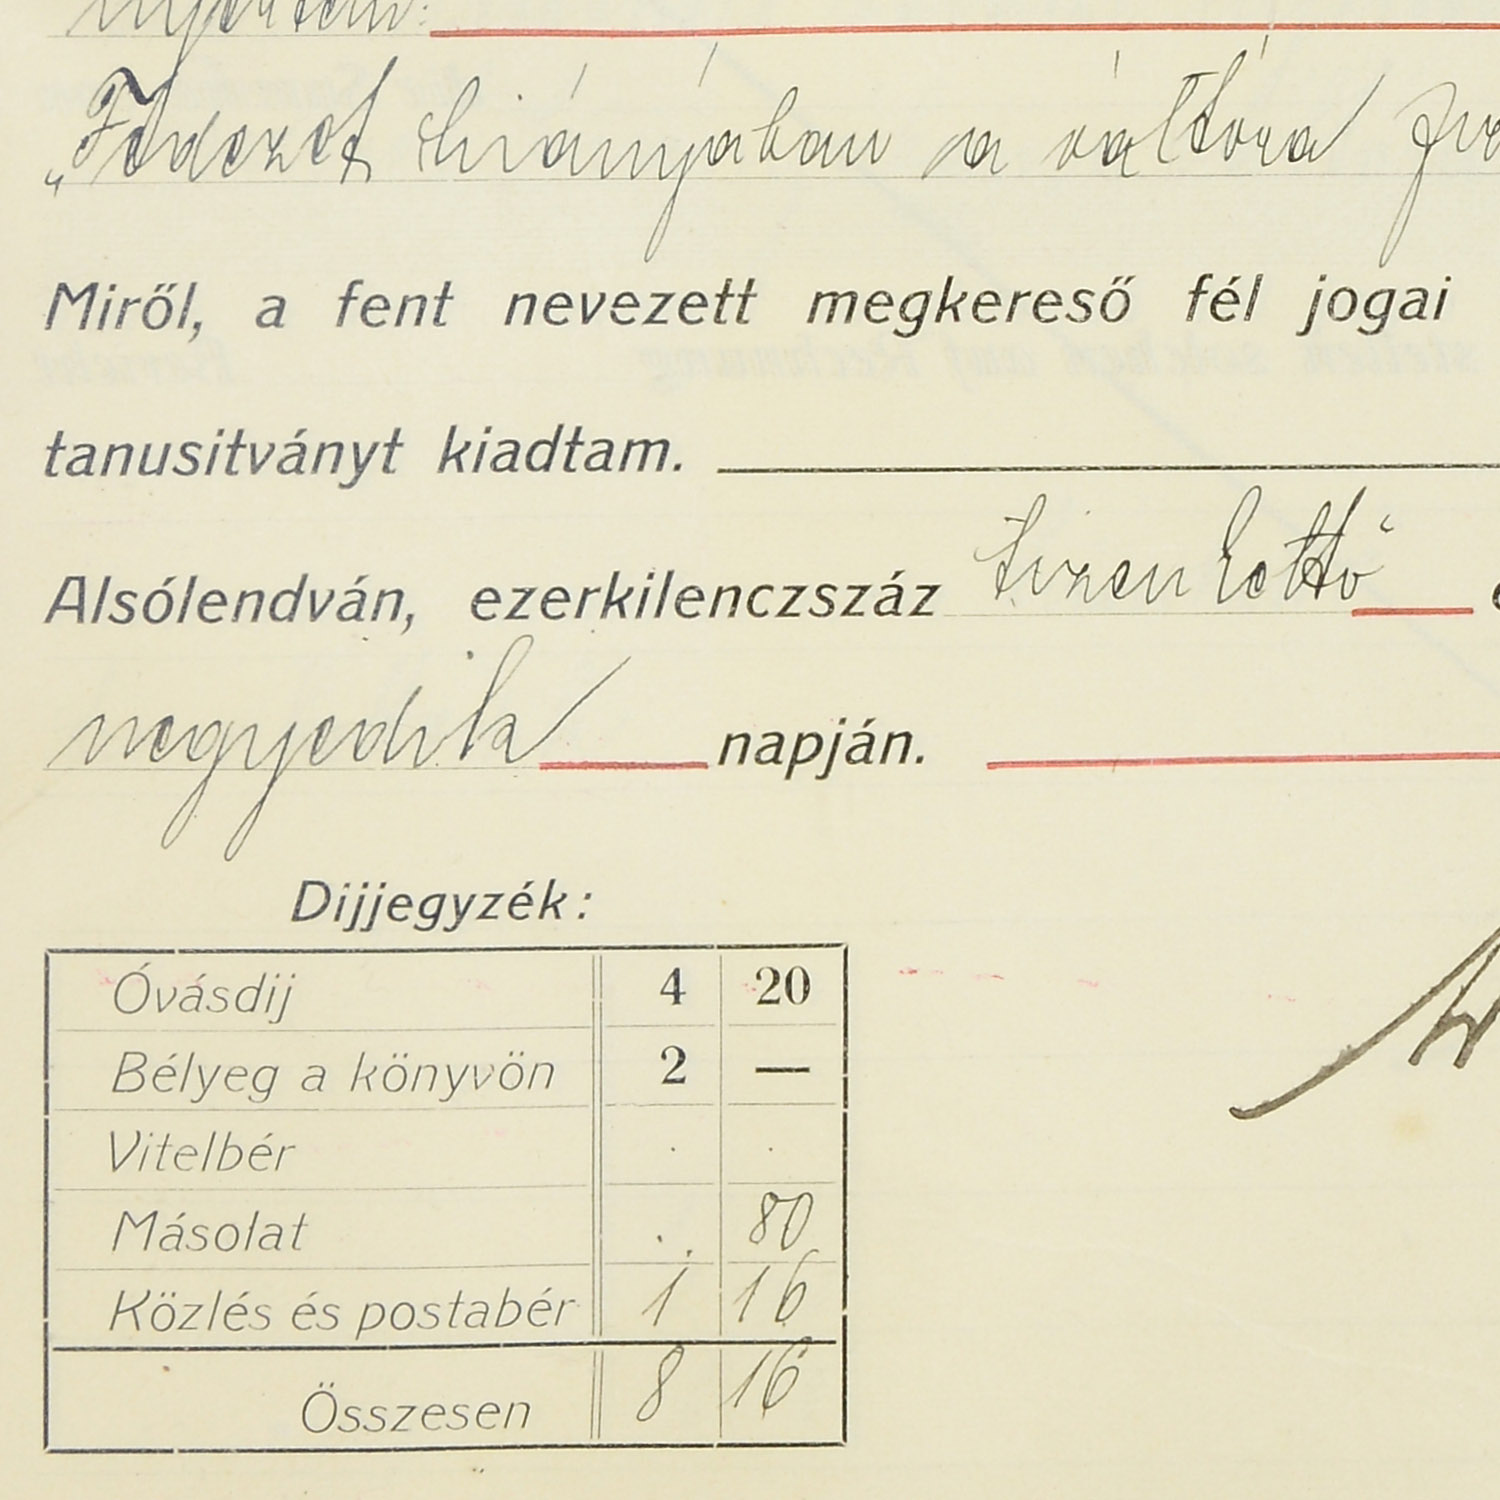 nyertem:
„Fedezet hiányában a váltóra
Miről, a fent nevezett megkereső fél jogai
tanusitványt kiadtam.
Alsólendván, ezerkilenczszáz tizenkettő
negyedik napján.
Dijjegyzék:
Óvásdij 4 20
Bélyeg a könyvön 2 —
Vitelbér . .
Másolat . . 80
Közlés és postabér 1 16
Összesen 8 16